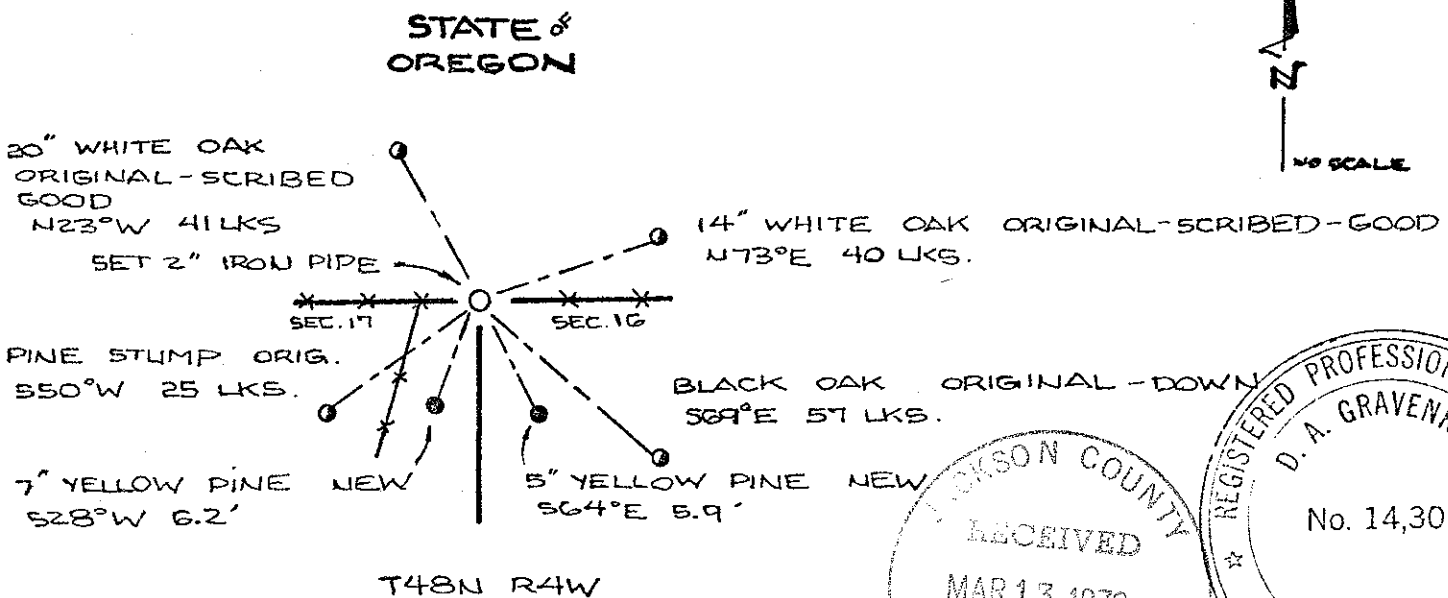 STATE OF
OREGON
N
NO SCALE
20" WHITE OAK
ORIGINAL-SCRIBED
GOOD
N23°W 41 LKS
14" WHITE OAK ORIGINAL-SCRIBED-GOOD
N73°E 40 LKS.
SET 2" IRON PIPE
SEC. 17
SEC. 16
PINE STUMP ORIG.
S50°W 25 LKS.
BLACK OAK ORIGINAL-DOWN
S69°E 57 LKS.
7" YELLOW PINE NEW
S28°W 6.2'
5" YELLOW PINE NEW
S64°E 5.9'
T48N R4W
COUNTY
RECEIVED
MAR 13
REGISTERED
D. A.
No. 14,30